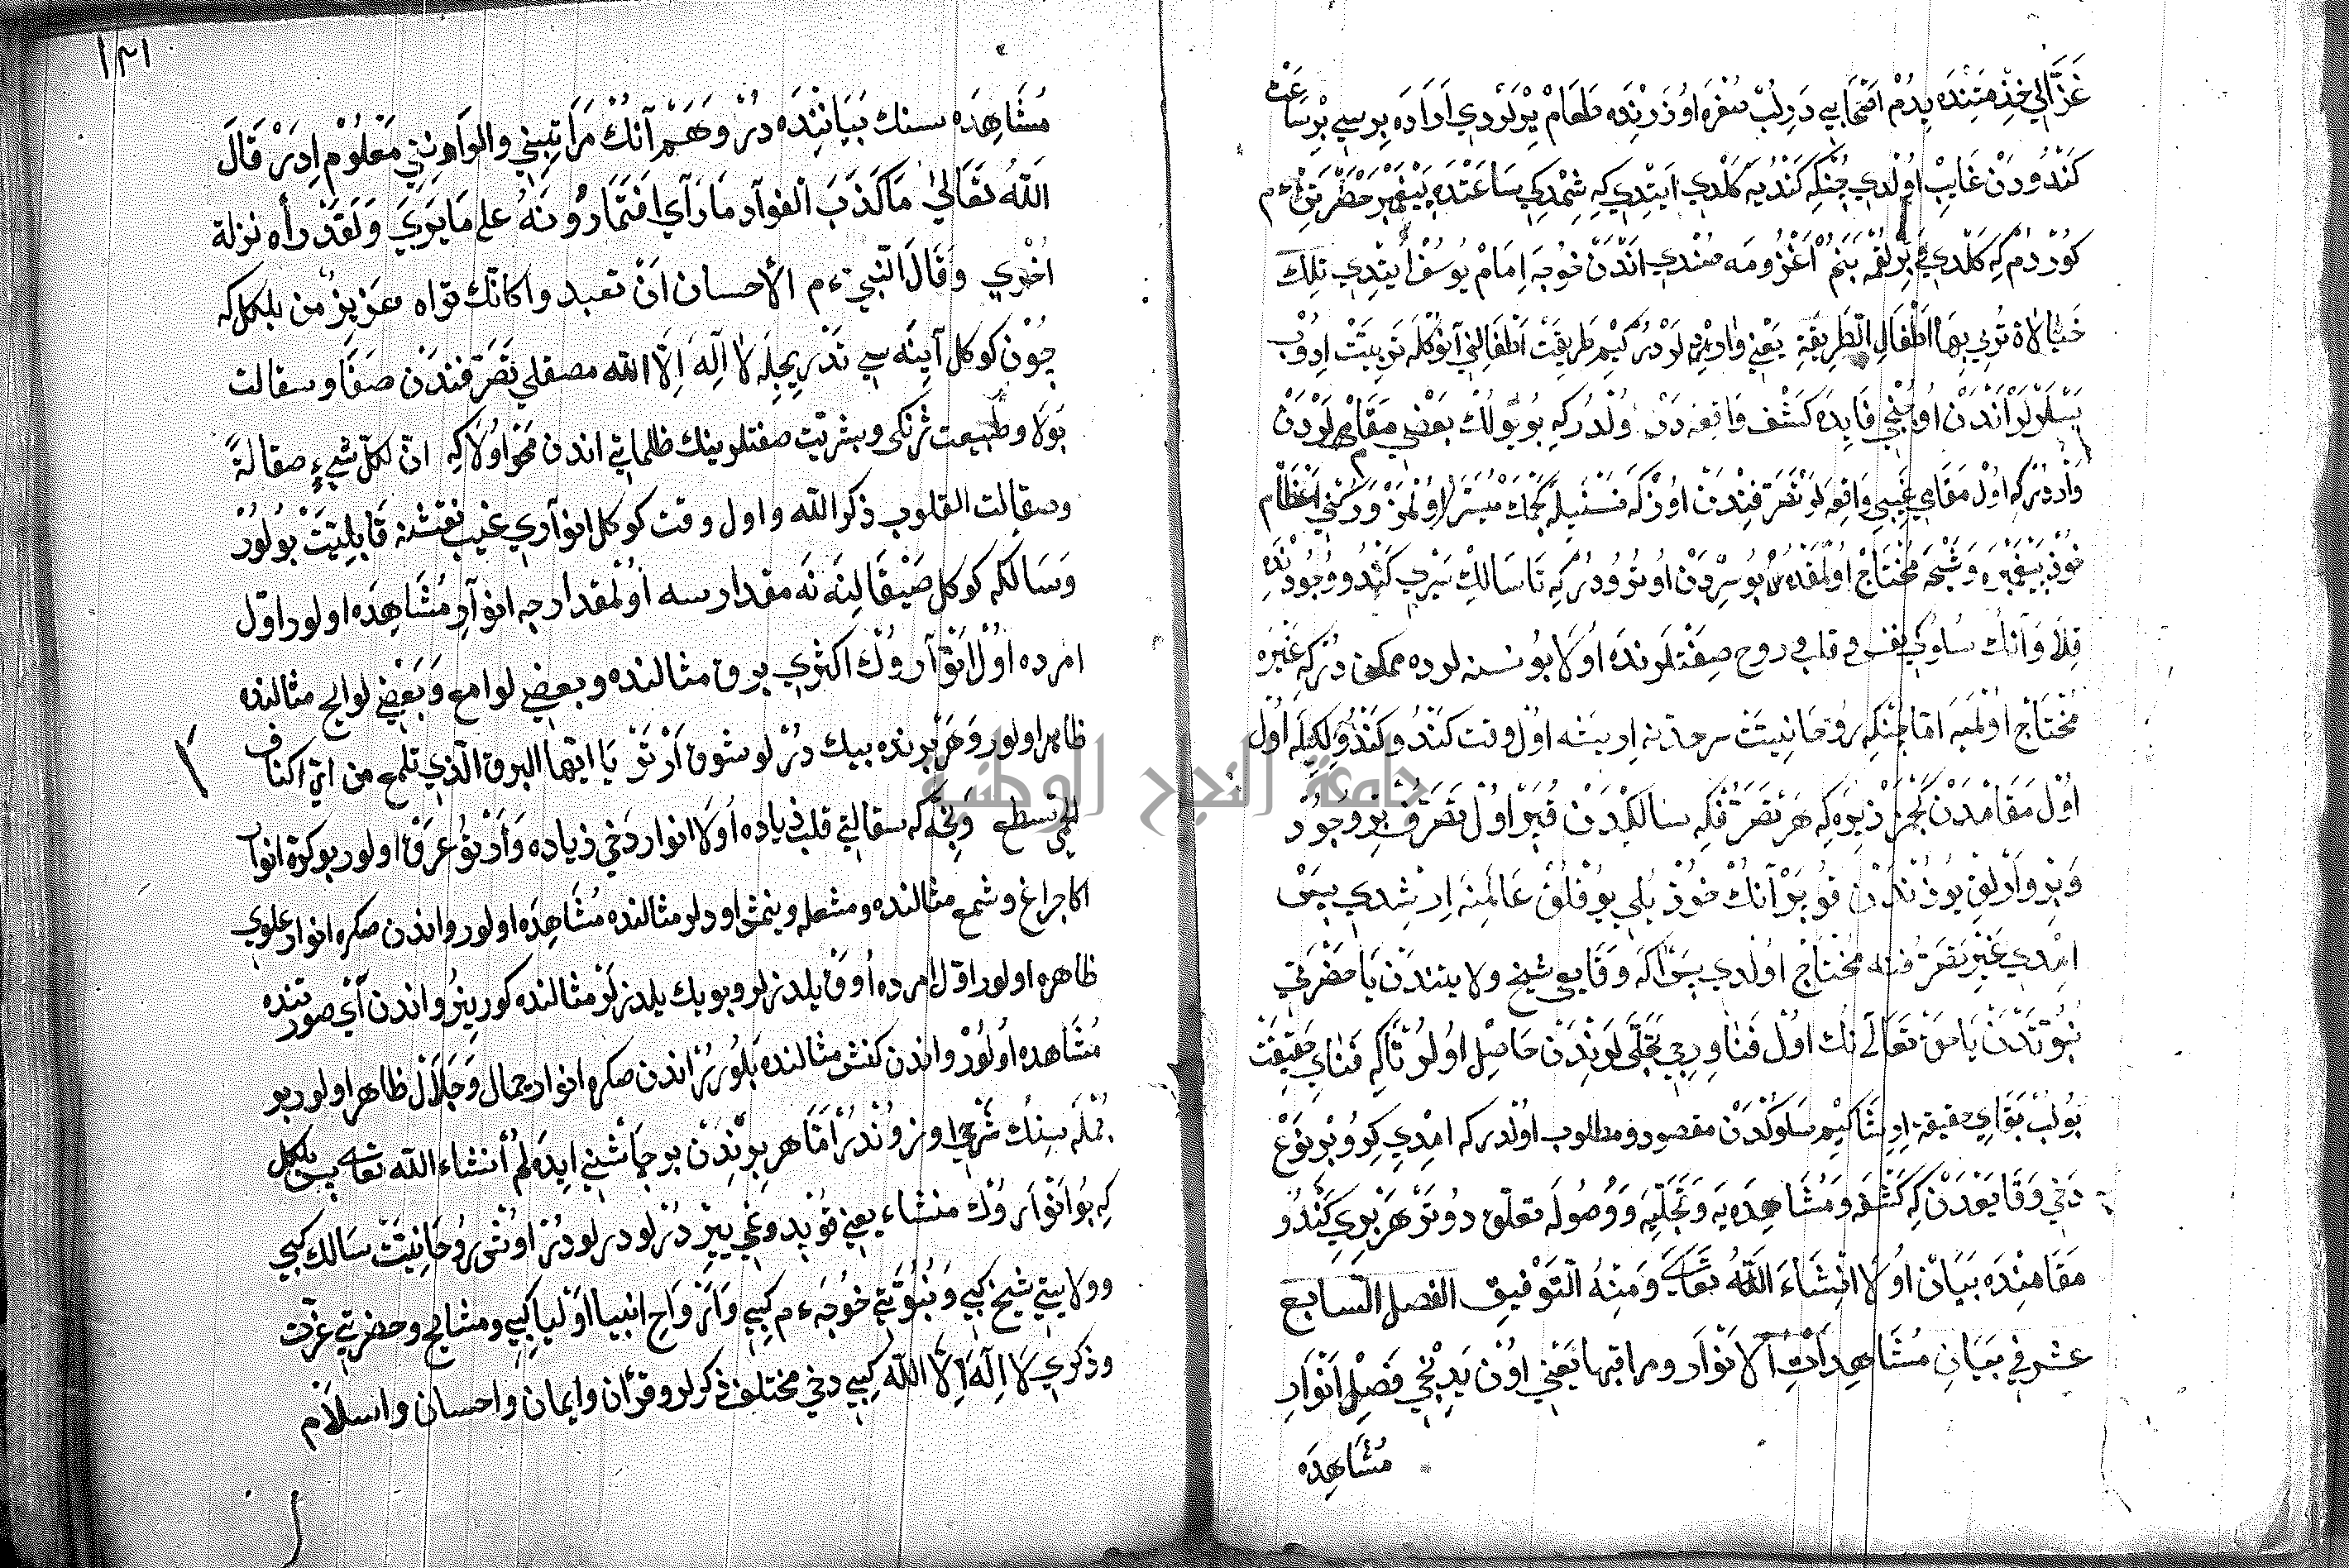 غَزَّالِي خِذمَتِنده يِدُمْ اَصْحَابِي دَرِلُبْ سُفْرَه اُوزَرِنْدَه طَعَامْ يِرْلَرْدِي اَرَادَه بِرِسِي بِرْ سَاعَتْ
كَنْدُودَنْ غَايِبْ اُولْدِي چُنْكِه كَنْدُيَه كَلْدِي اَيِتْدِي كِه شِمْدِكِي سَاعَتْدَه پَيْغَمْبَرْ حَضْرَتِنْ ءم
كُورْدُمْ كِه كَلْدِي بِرْ لُقْمَه بَنُمْ اَغْزُومَه صُنْدِي اَنْدَنْ خُوجَه اِمَامْ يُوسُفْ اَيِتْدِي تِلك
خَيَالَاة تُرَبِّي بِهَا اَطْفَالِ الطَّرِيقَةِ يَعْنِي لَرْدُرْ كِيم طَرِيقَتْ اَطْفَالِنِي آنُوكْلَه تَرْبِيَتْ اِدُوبْ
بَسْلَرْلَرْ اَنْدَنْ اُوچُنْجِي فَايِدَه كَشْف وَاقِعَه دَنْ اُولْدُرْكِه بُو يُولُكْ بَعْضِي مَقَامْلَرِنْدَنْ
وَارْدُرْكِه اُولْ مَقَامِي غَيْبِي وَاقِعَه لَرْ تَصَرُّفِنْدَنْ اُوزْكَه نَسْنَيِلَه كَچْمَكْ مُيَسَّرْ اُولْمَزْ
خُودْ پَيْغَمْبَرَه وَشَيْخَه مُحْتَاجْ اُولْمَقْدَه بُو سِرْدَنْ اُوتُورُدُرْكِه تَا سَالِكْ سَيْرِي كَنْدُو وُجُودِنْدَه
قِلَا وَآنُكْ سُلُوكِي نفس وقلب وروح صِفَتْلَرِنْدَه اُولَا بُو نسنه لرده ممكن دُرْكِه غَيْرَه
مُحْتَاجْ اُولْمَيَه اَمَّا چُنْكِه رُوحَانِيَّتْ سرحدّينه اِرِيشه اُول وقت كَنْدُو كَنْدُولِكِيلَه اُولْ
اُولْ مَقَامْدَنْ كَچْمَزْ زِيرَه كِه هَرْ تَصَرُّفْكِه سالكْدَنْ قُوپَرْ اُولْ تَصَرُّفْ بِرْ وُجُودْ
وَبِرْ وَارْلِقْ يُوزُنْدَنْ قُوپَرْ آنُكْ خُودْ يُولِي يُوقْلُقْ عَالَمِنَه اِرِشْدِي پَسْ
اِمْدِي غَيْرِ تَصَرُّفنه مُحْتَاجْ اُولْدِي پَس آكَه وَقَايِعِي شيخ ولايتندن يَا حَضْرَتِي
نُبُوَّتْدَنْ يَا حَقّ تَعَالَى نُكْ اُولْ فَنَا وِيرِيجِي تَجَلِّيلَرِنْدَنْ حَاصِل اُولُورْ تَا كِه فَنَايِ حَقِيقَتْ
بُولُبْ بَقَايِ حقيقته اِرِيشَا كِيم سلوكدَنْ مقصود ومطلوب اُولْدركه اِمْدِي كِرُو بِرْ نَوْعْ
دَخِي وَقَايِعْدَنْ كِه كَشْفَه وَمُشَاهِدَه يَه وَتَجَلِّيَه وَوُصُولَه تعلّق دُوتَرْ هَرْ بِرِي كَنْدُو
مَقَامِنْدَه بَيَانْ اُولَا اِنْشَاءَ اَللّٰهُ تعالى وَمِنْهُ اَلتَّوْفِيق الفصل السابع
عشر في بَيَانِ مُشَاهِدَاتِ اَلْاَنْوَار ومراتبها يَعْنِي اُونْ يَدِنْجِي فَصِلْ اَنْوَارِ
مُشَاهِدَه
١٣١
مُشَاهِدَه سنك بَيَانِنْدَه دُرْ وَهَمْ آنُكْ مَرَاتِبِنِي والوَانِنِي مَعْلُومْ اِدَرْ قَالَ
اَللّٰهُ تَعَالٰى مَا كَذَبَ الفوآد مَا رَآي اَفَتُمَارُونَهُ على مَا يَرَيَ وَلَقَدْ رأه نزلة
اُخْرَي وَقَالَ النَّبِيّ ءم الأحسان اَنْ تعبد وا كانّك تراه عَزِيزُمن بلكل كه
چُونْ كوكل آيِنَه سِي تَدْرِيجِلَه لَا اِلٰهَ اِلَّا الله مصقلي تَصَرُّفندَنْ صَفَا وسقالت
بُولَا وطبيعت ژنكى وبشريّت صفتلرينك ظلماتي اندن مَحْو اُولَا كِه انّ لكلّ شيءٍ صقالةً
وسقالت القلوب ذكر الله واول وقت كوكل انوآري غيب نقشنه قَابِلِيَتْ بُولُورْ
وَسَالكه كوكل صَيْقَالِنَه نَه مقدارسه اُولْمقدارجه انوآر مُشَاهِدَه اولور اوّل
امرده اُولْ اَنْوَآرُوكْ اكثري برق مثالنده وبعضي لوامع وَبَعْضِي لوايح مثالنده
ظاهر اولور وَهَرْ بِرنده بيك دُرْلو شوق اَرْتَرْ يَا ايّها البرق الّذي تلمع من اىّ اكناف
الحمى تسطع وَنِچَه كه سقالتي قلب زياده اُولَا انوار دَخِي زياده وَارْتُوغْرَقْ اولور بوكرة انوآر
اكا چراغ وشمع مثالنده ومشعله ويَنْمش اودلر مثالنده مُشَاهِدَه اولور واندن صكره انوار علوي
ظاهره اولور اوّل امرده اُووَقْ يلدزلر وبويك يلدزلَرْ مثالنده كورينُرْ واندن آيْ صورتنده
مُشَاهده اُولُورْ واندن كنش مثالنده بَلُورُرْ اندن صكره انوار جمال وَجَلَالْ ظاهر اولور بو
جُمْلَه سِنِكْ شَرْحِي اوزوندُرْ اَمَّا هر بِرِنْدَنْ بر چَاشْنِي اِيدَه لُمْ اَنشاء الله تعالى پس بلكل
كِه بُو اَنْوَارُوكْ منشاء يعنى قوپدوغي يير دُرْلو درلو دُرْ اُوشْ رُوحَانِيَتْ سَالك كبي
وولايتي شيخ كبي وَنُبُوَّتِي خُوجَه ءم كبي وَاَرْوَاحِ انبيا اَوْليا كبي ومشايح وحضرتِي عزّت
وذكري لَا اِلٰهَ اِلَّا اللّٰه كبي دخي مختلف ذكرلر وقرأن وايمان واحسان واسلَامْ
جامعة النجاح الوطنية